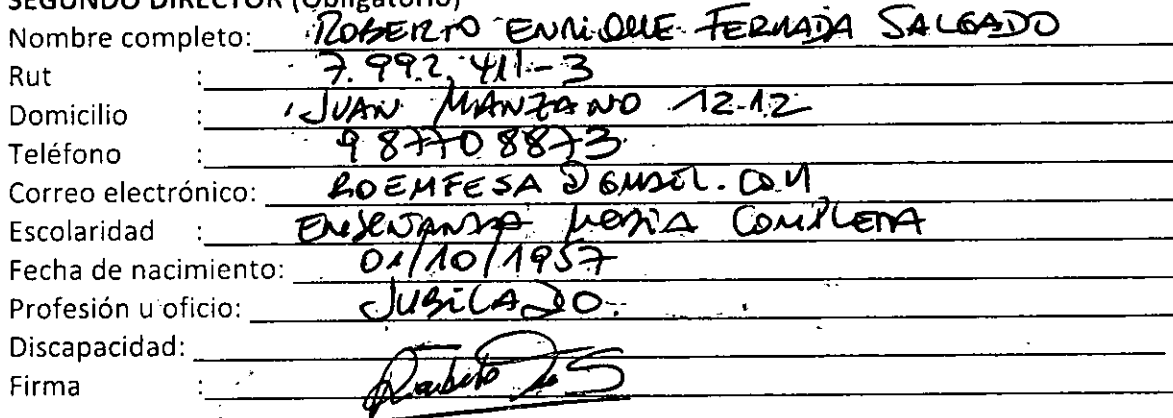 SEGUNDO DIRECTOR (Obligatorio)
Nombre completo: ROBERTO ENRIQUE FERNADA SALGADO
Rut : 7.992.411-3
Domicilio : JUAN MANZANO 1212
Teléfono : 987708873
Correo electrónico: ROEMFESA@GMAIL.COM
Escolaridad : ENSEÑANZA MEDIA COMPLETA
Fecha de nacimiento: 01/10/1957
Profesión u oficio: JUBILADO.
Discapacidad:
Firma :